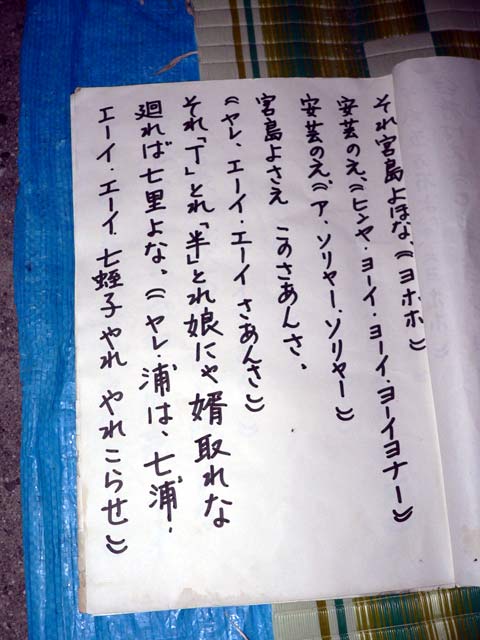 それ宮島よほな、《ヨホホ》
安芸のえ、《ヒンヤ・ヨーイ・ヨーイ・ヨーイヨナー》
安芸のえ《ア、ソリャー・ソリャー》
宮島よさえ このさあんさ、
《ヤレ、エーイ・エーイさあんさ》
それ「丁」とれ「半」とれ娘にゃ婿取れな
廻れば七里よな、《ヤレ・浦は、七浦・
エーイ・エーイ、七蛭子やれ やれこらせ》